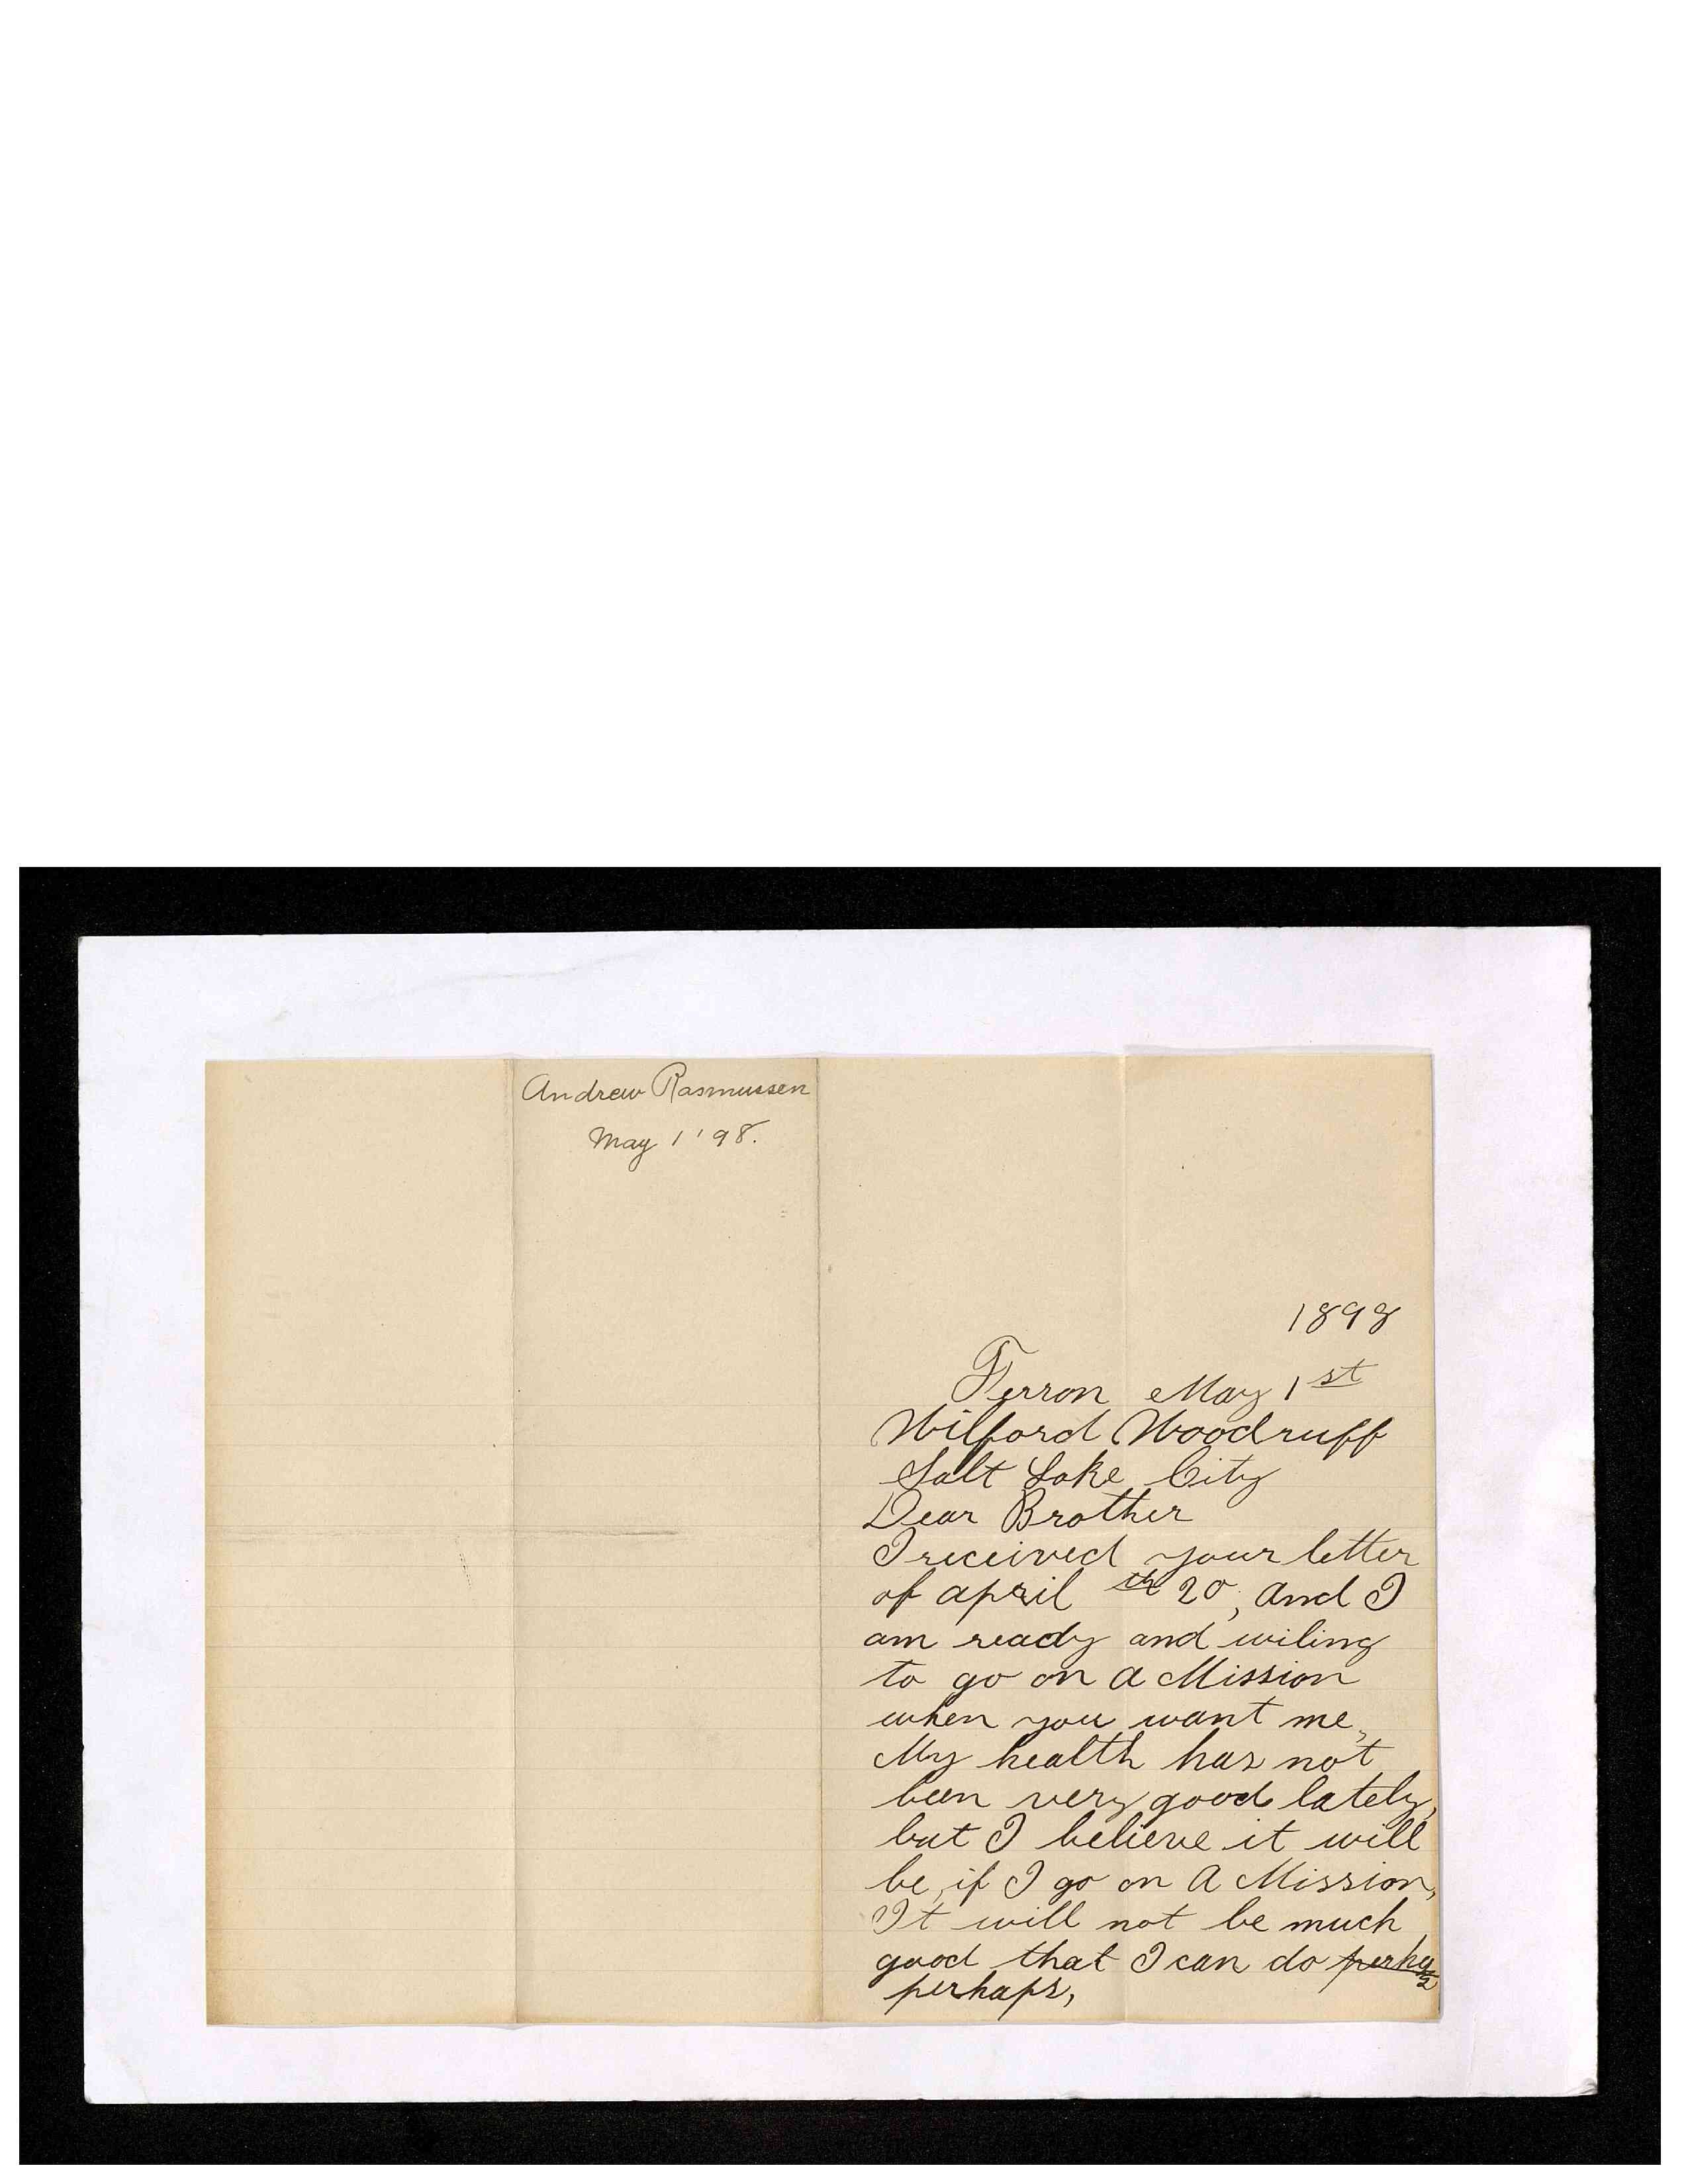 Andrew Rasmussen
May 1 '98.
1898
Ferron May 1st
Wilford Woodruff
Salt Lake City
Dear Brother
I received your letter
of april th 20, and I
am ready and wiling
to go on a Mission
when you want me,
My health has not
been very good lately,
but I believe it will
be, if I go on A Mission,
It will not be much
good that I can do
perhaps,